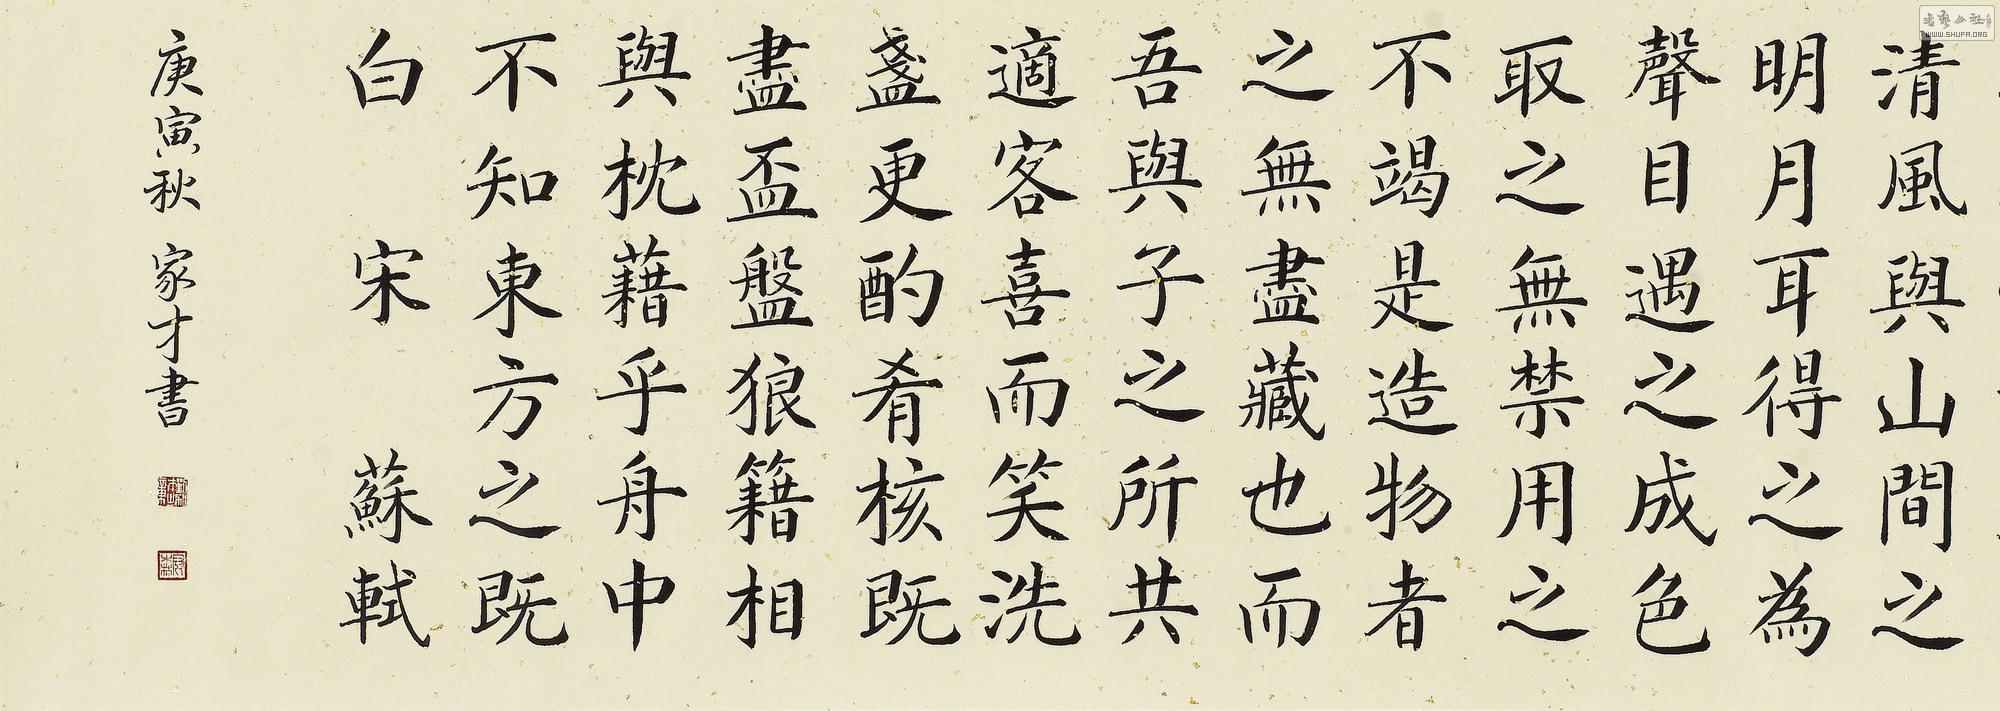 清風與山間之
明月耳得之為
聲目遇之成色
取之無禁用之
不竭是造物者
之無盡藏也而
吾與子之所共
適客喜而笑洗
盞更酌肴核既
盡盃盤狼籍相
與枕藉乎舟中
不知東方之既
白 宋 蘇軾
庚寅秋 家才書
WWW.SHUFA.ORG